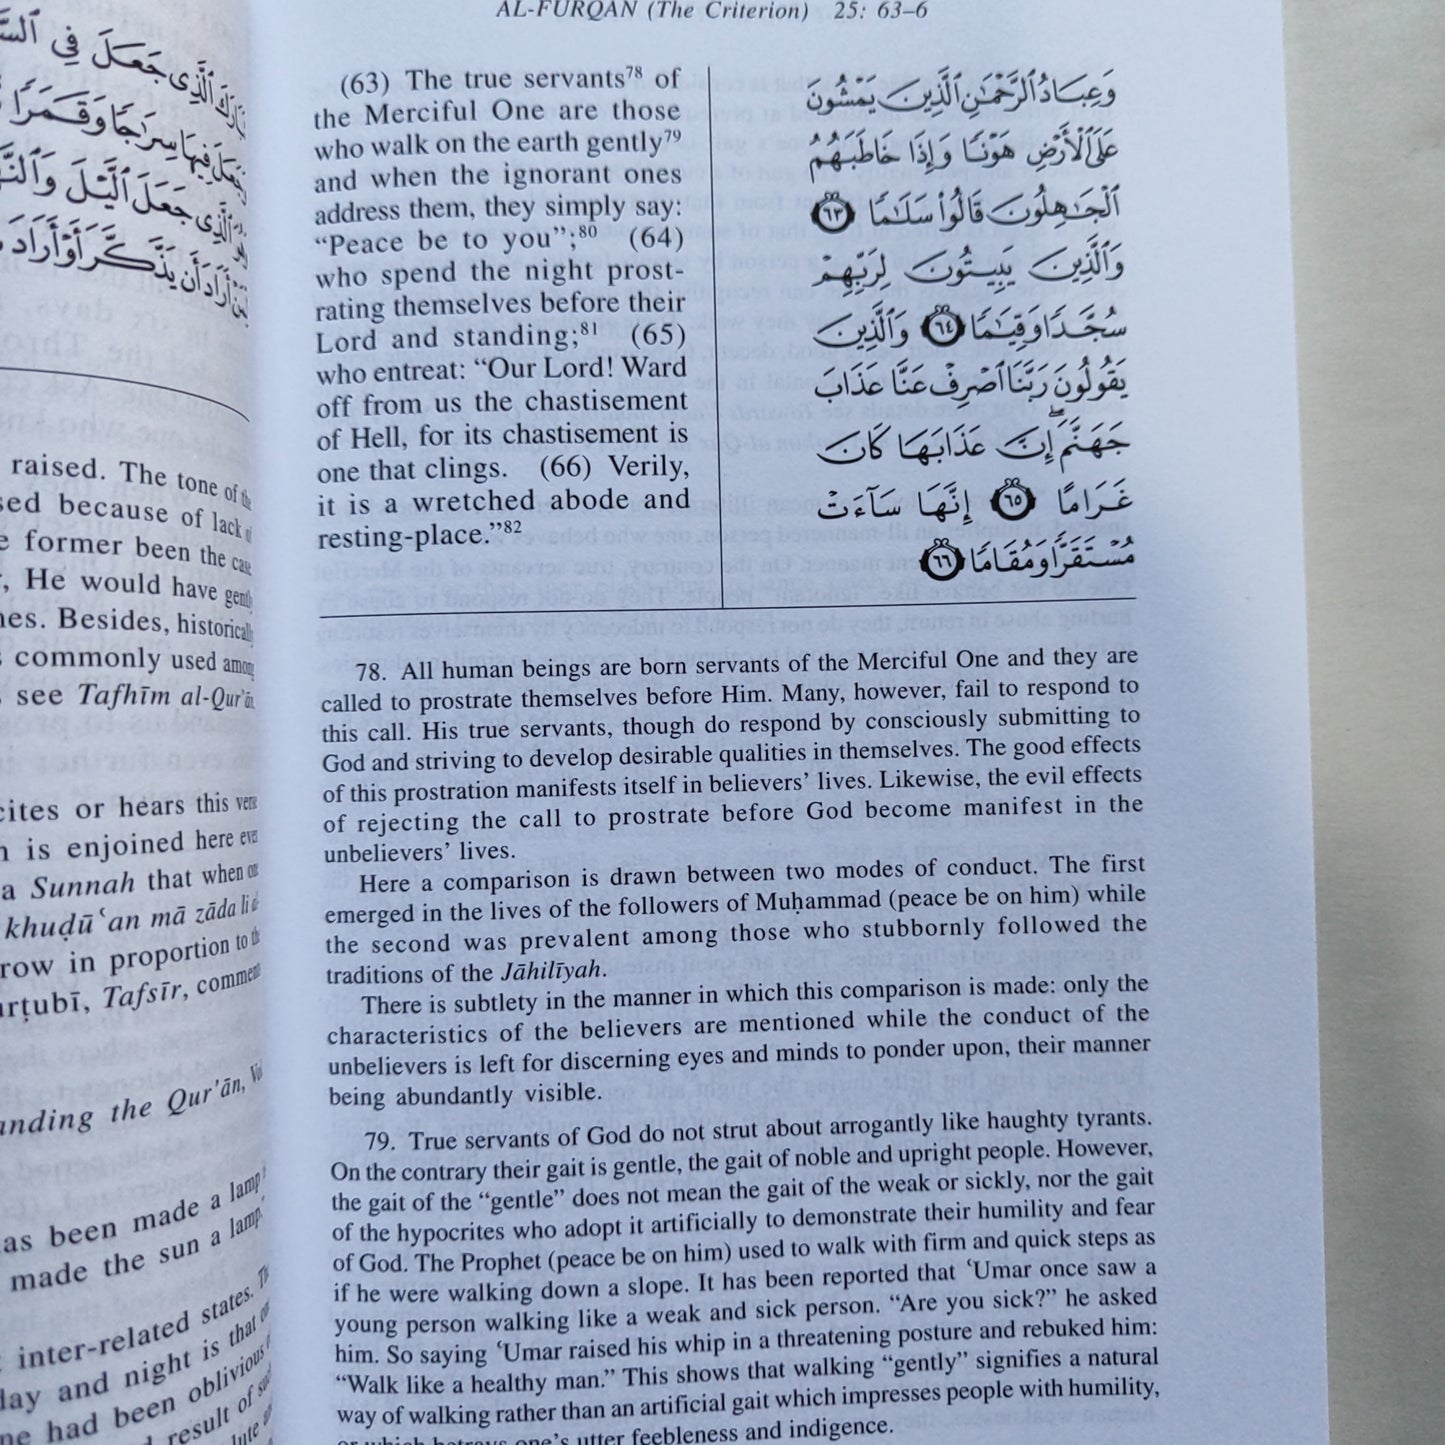 ٱلَّذِى جَعَلَ فِى
جَعَلَ ٱلَّيْلَ
أَرَادَ أَن يَذَّكَّرَ أَوْ أَرَادَ
raised. The tone of the
because of lack of
former been the case
He would have gently
Besides, historically
commonly used among
see Tafhīm al-Qur'ān,
or hears this verse
is enjoined here
a Sunnah that when one
khuḍū‘an mā zāda
in proportion to the
Tafsīr,
the Qur'ān,
been made a lamp
made the sun a lamp.'
inter-related states.
and night is that
had been oblivious
result of
AL-FURQĀN (The Criterion) 25: 63–6
(63) The true servants78 of
the Merciful One are those
who walk on the earth gently79
and when the ignorant ones
address them, they simply say:
“Peace be to you”;80 (64)
who spend the night prost-
rating themselves before their
Lord and standing;81 (65)
who entreat: “Our Lord! Ward
off from us the chastisement
of Hell, for its chastisement is
one that clings. (66) Verily,
it is a wretched abode and
resting-place.”82
وَعِبَادُ ٱلرَّحْمَٰنِ ٱلَّذِينَ يَمْشُونَ
عَلَى ٱلْأَرْضِ هَوْنًا وَإِذَا خَاطَبَهُمُ
ٱلْجَٰهِلُونَ قَالُوا۟ سَلَٰمًا ٦٣
وَٱلَّذِينَ يَبِيتُونَ لِرَبِّهِمْ
سُجَّدًا وَقِيَٰمًا ٦٤ وَٱلَّذِينَ
يَقُولُونَ رَبَّنَا ٱصْرِفْ عَنَّا عَذَابَ
جَهَنَّمَ ۖ إِنَّ عَذَابَهَا كَانَ
غَرَامًا ٦٥ إِنَّهَا سَآءَتْ
مُسْتَقَرًّا وَمُقَامًا ٦٦
78. All human beings are born servants of the Merciful One and they are
called to prostrate themselves before Him. Many, however, fail to respond to
this call. His true servants, though do respond by consciously submitting to
God and striving to develop desirable qualities in themselves. The good effects
of this prostration manifests itself in believers’ lives. Likewise, the evil effects
of rejecting the call to prostrate before God become manifest in the
unbelievers’ lives.
Here a comparison is drawn between two modes of conduct. The first
emerged in the lives of the followers of Muḥammad (peace be on him) while
the second was prevalent among those who stubbornly followed the
traditions of the Jāhilīyah.
There is subtlety in the manner in which this comparison is made: only the
characteristics of the believers are mentioned while the conduct of the
unbelievers is left for discerning eyes and minds to ponder upon, their manner
being abundantly visible.
79. True servants of God do not strut about arrogantly like haughty tyrants.
On the contrary their gait is gentle, the gait of noble and upright people. However,
the gait of the “gentle” does not mean the gait of the weak or sickly, nor the gait
of the hypocrites who adopt it artificially to demonstrate their humility and fear
of God. The Prophet (peace be on him) used to walk with firm and quick steps as
if he were walking down a slope. It has been reported that ‘Umar once saw a
young person walking like a weak and sick person. “Are you sick?” he asked
him. So saying ‘Umar raised his whip in a threatening posture and rebuked him:
“Walk like a healthy man.” This shows that walking “gently” signifies a natural
way of walking rather than an artificial gait which impresses people with humility,
or which betrays one’s utter feebleness and indigence.